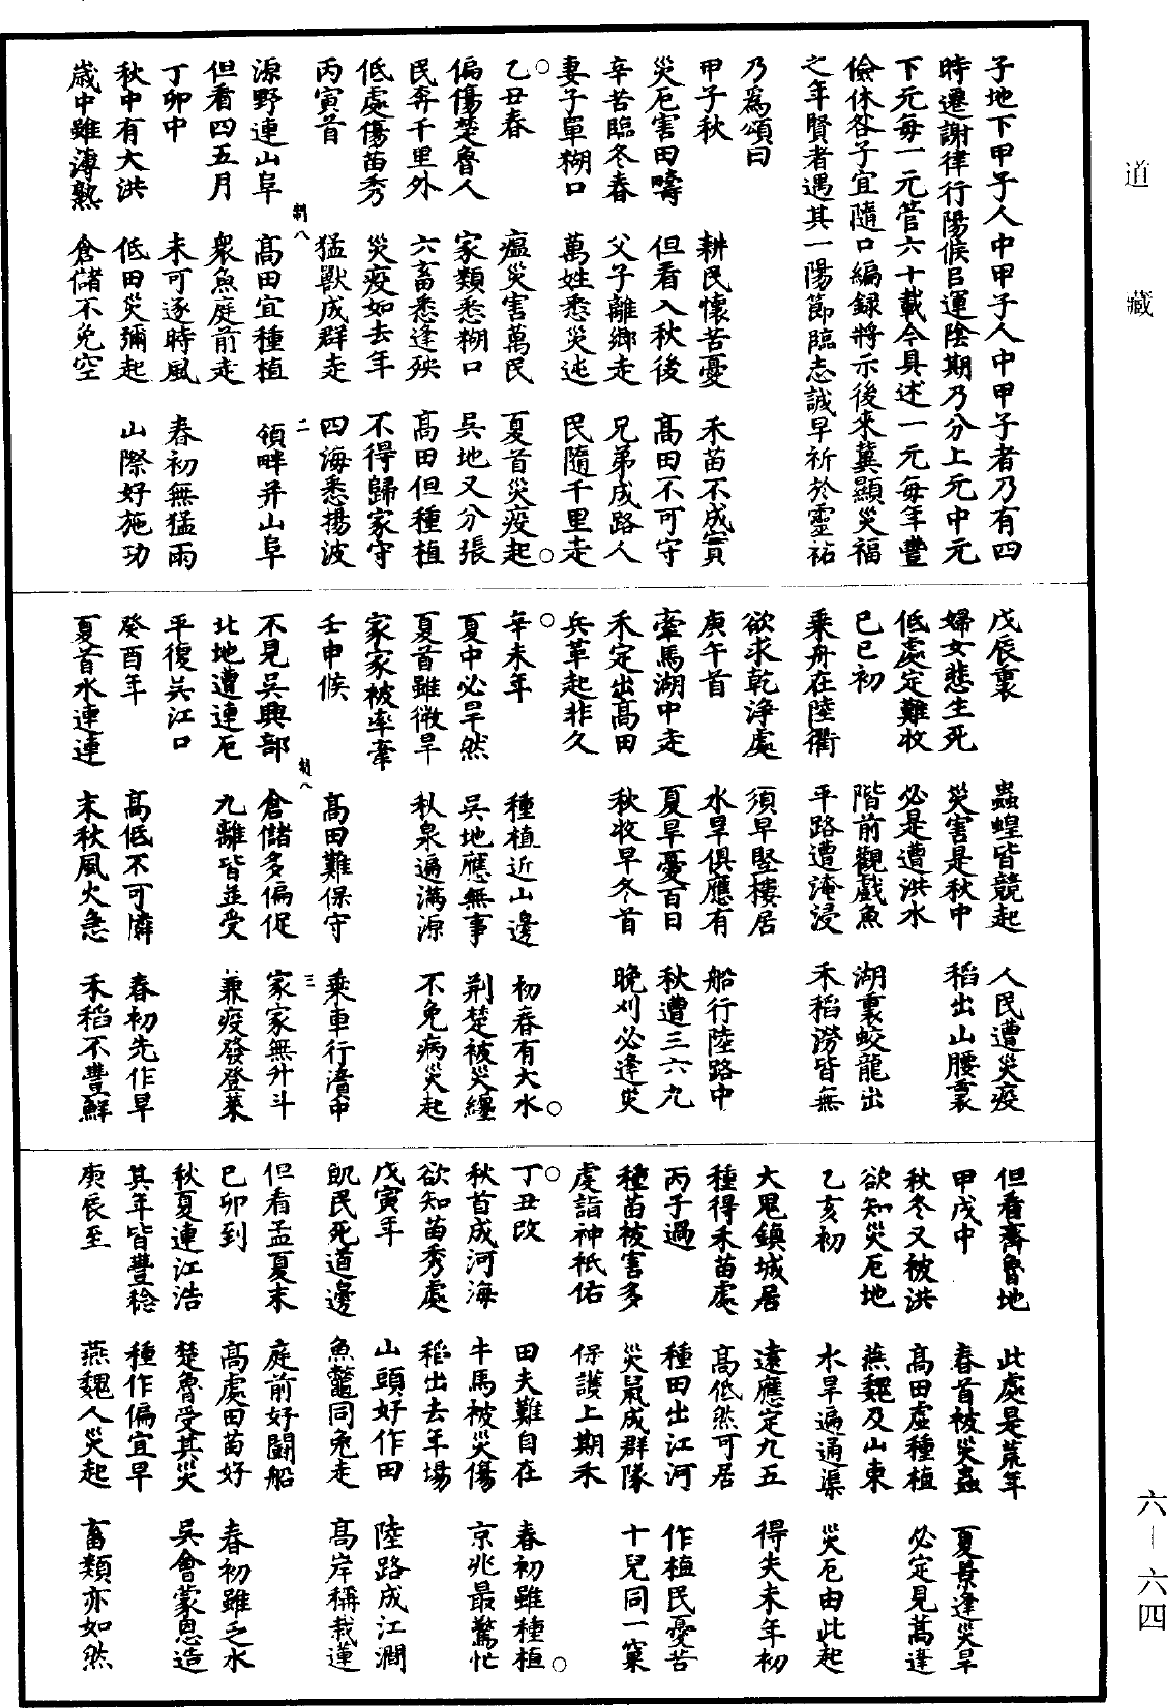 道藏
六—六四
子地下甲子人中甲子人中甲子者乃有四
時遷謝律行陽候呂運陰期乃分上元中元
下元每一元管六十載今具述一元每年豐
儉休咎子宜隨口編録將示後來冀顯災福
之年賢者遇其一陽節臨志誠早祈於靈祐
乃爲頌曰
甲子秋　耕民懷苦憂　禾苗不成實
災厄害田疇　但看入秋後　高田不可守
辛苦臨冬春　父子離鄉走　兄弟成路人
妻子單糊口　萬姓悉災迍　民隨千里走
○乙丑春　瘟災害萬民　夏首災疫起○
偏傷楚魯人　家類悉糊口　吳地又分張
民奔千里外　六畜悉逢殃　高田但種植
低處傷苗秀　災疫如去年　不得歸家守
丙寅首　猛獸成群走　四海悉揚波
制八　二
源野連山阜　高田宜種植　領畔并山阜
但看四五月　衆魚庭前走
丁卯中　未可逐時風　春初無猛雨
秋中有大洪　低田災彌起　山際好施功
歲中雖薄熟　倉儲不免空
戊辰裏　蟲蝗皆競起　人民遭災疫
婦女悲生死　災害是秋中　稻出山腰裏
低處定難收　必是遭洪水
己巳初　階前觀戲魚　湖裏蛟龍出
乘舟在陸衢　平路遭淹浸　禾稻澇皆無
欲求乾淨處　須早竪樓居
庚午首　水旱俱應有　船行陸路中
牽馬湖中走　夏旱憂百日　秋遭三六九
禾定出高田　秋收早冬首　晚刈必逢災
兵革起非久
○辛未年　種植近山邊　初春有大水○
夏中必旱然　吳地應無事　荆楚被災纏
夏首雖微旱　秋泉遍滿源　不免病災起
家家被率牽
壬申候　高田難保守　乘車行濆中
制八　三
不見吳興部　倉儲多偏促　家家無升斗
北地遭連厄　九離皆並受　兼疫發登萊
平復吳江口
癸酉年　高低不可憐　春初先作旱
夏首水連連　末秋風火急　禾稻不豐鮮
但看齊魯地　此處是荒年
甲戌中　春首被災蟲　夏景逢災旱
秋冬又被洪　高田虛種植　必定見蒿蓬
欲知災厄地　燕魏及山東
乙亥初　水旱遍通渠　災厄由此起
大鬼鎮城居　遠應定九五　得失未年初
種得禾苗處　高低然可居
丙子過　種田出江河　作植民憂苦
種苗被害多　災鼠成群隊　十兒同一窠
虔詣神祇佑　保護上期禾
○丁丑改　田夫難自在　春初雖種植○
秋首成河海　牛馬被災傷　京兆最驚忙
欲知苗秀處　稻出去年場
戊寅年　山頭好作田　陸路成江澗
飢民死道邊　魚鼈同兔走　高岸稱栽蓮
但看孟夏末　庭前好鬬船
己卯到　高處田苗好　春初雖乏水
秋夏連江浩　楚魯受其災　吳會蒙恩造
其年皆豐稔　種作偏宜早
庚辰至　燕魏人災起　畜類亦如然